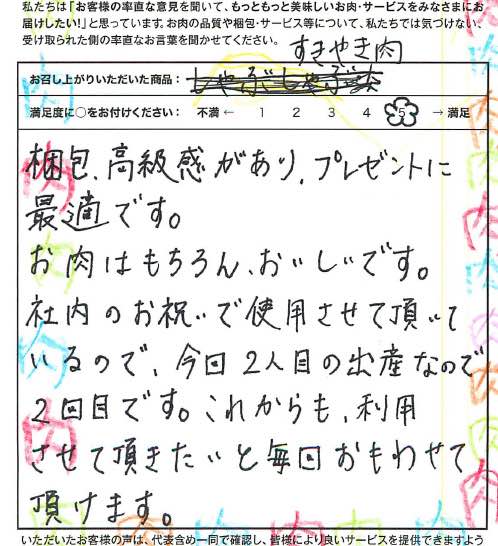 私たちは「お客様の率直な意見を聞いて、もっともっと美味しいお肉・サービスをみなさまにお
届けしたい!」と思っています。お肉の品質や梱包・サービス等について、私たちでは気づけない、
受け取られた側の率直なお言葉を聞かせてください。
すきやき肉
お召し上がりいただいた商品:
満足度に○をお付けください: 不満 ← 1 2 3 4 5 → 満足
梱包、高級感があり、プレゼントに
最適です。
お肉はもちろん、おいしいです。
社内のお祝いで使用させて頂いて
いるので、今回2人目の出産なので
2回目です。これからも、利用
させて頂きたいと毎回おもわせて
頂けます。
いただいたお客様の声は、代表含め一同で確認し、皆様により良いサービスを提供できますよう